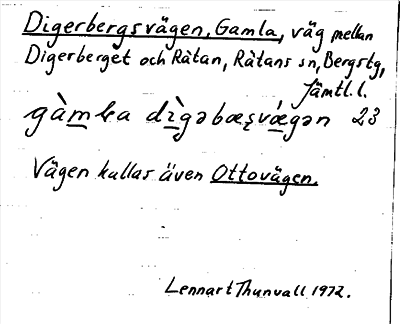 Digerbergsvägen, Gamla, väg mellan
Digerberget och Råtan, Råtans sn, Bergstg,
Jämtl. l.
gàmla dìgəbæʂvǽgən 23
Vägen kallas även Ottovägen.
Lennart Thunvall 1972.